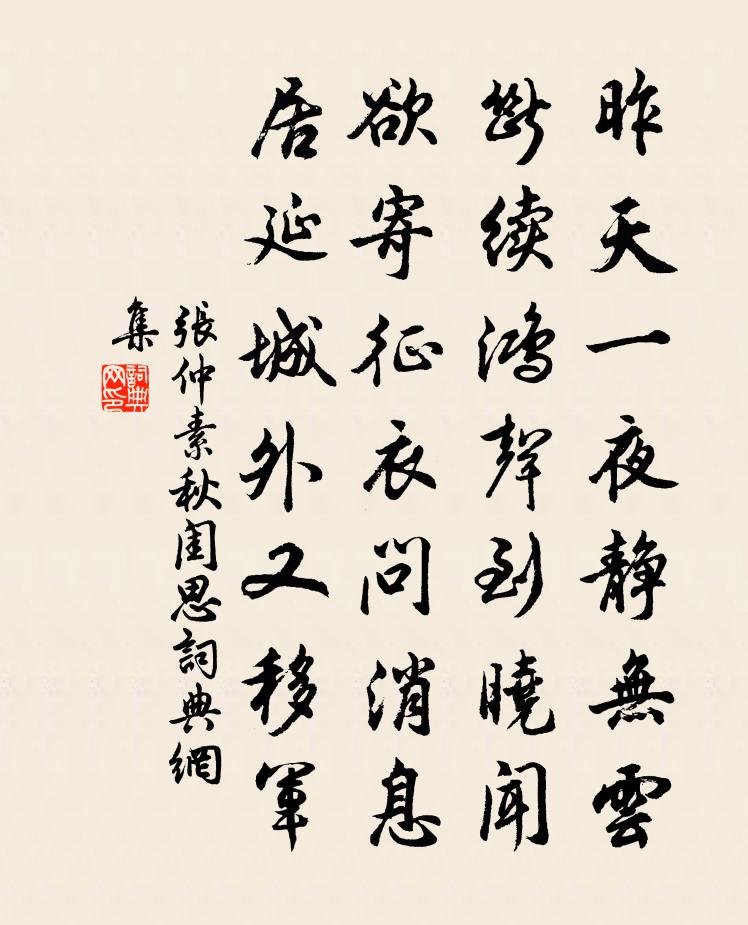 昨天一夜静無雲
断续鴻聲到曉聞
欲寄征衣問消息
居延城外又移軍
張仲素秋閨思詞典網
集
詞典
网印